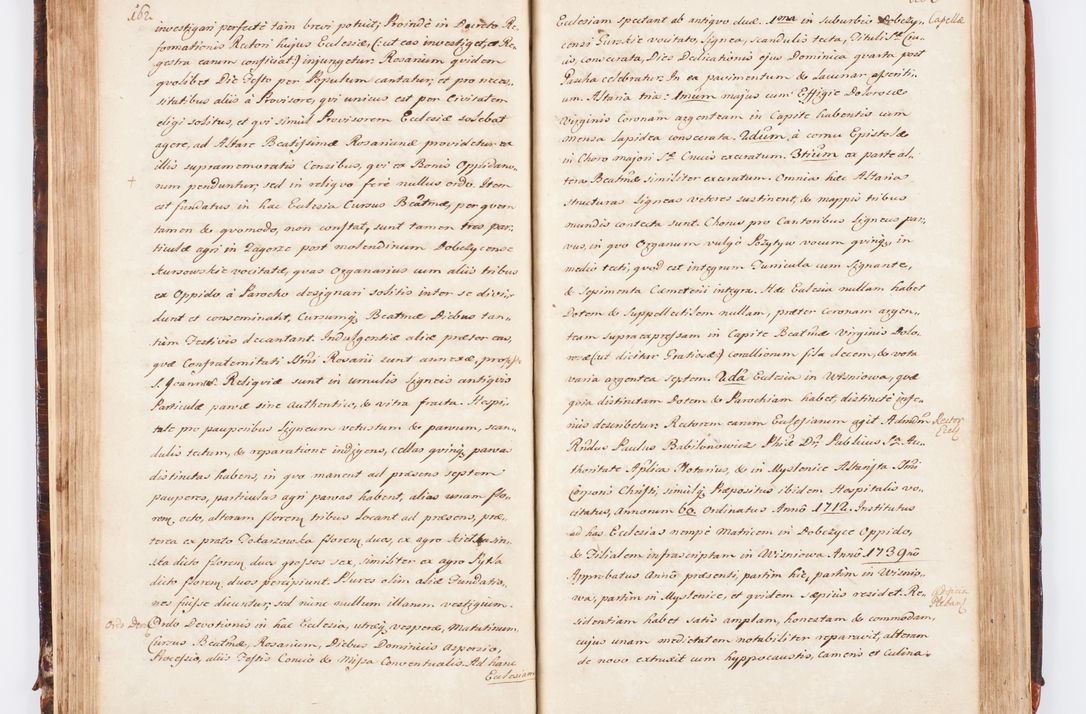 162.
investigari perfectè tam brevi potuit; Proindè in Decreto Re-
formationis Rectori hujus Ecclesiæ, (: ut eas investiget, et Re
gestra earum conficiat:) injungetur. Rosarium quidem
quolibet Die Festo per Populum cantatur, et pro neces„
sitatibus aliis à Provisore, qui unicus est per Civitatem
eligi solitus, et qui simul Provisorem Ecclesiæ solebat
agere, ad Altare Beatissimæ Rosarianæ providetur ex
illis supramemoratis Censibus, qui ex Bonis Oppidano„
rum penduntur, sed in reliquo ferè nullus ordo. Item
est fundatus in hac Ecclesia Cursus Beatmæ, per quem
tamen & quomodo, non constat, sunt tamen tres par„
ticulæ agri in Zagorze post molendinum Dobczycense
Kursowskie vocitatæ, quas Organarius cum aliis tribus
ex Oppido à Parocho designari solitis inter se divi„
dunt et conseminant, Cursumq; Beatmæ Diebus tan„
tùm Festivis decantant. Indulgentiæ aliæ præter eas,
quæ Confraternitati Ssmi Rosarii sunt annexæ, pro festo
S. Joannis. Reliquiæ sunt in tumulis ligneis antiquis
Particulæ parvæ sine authentico, & vitra fracta. Hospi„
tale pro pauperibus ligneum vetustum & parvum, scan„
dulis tectum, & reparatione indigens, cellas quinq; parvas
distinctas habens, in quo manent ad præsens septem
pauperes, particulas agri parvas habent, alias unam flo„
ren, octo, alteram floren, tribus locant ad præsens, præ„
terea ex prato Tokarzowska floren, duos, ex agro
dicto floren, duos grossos sex, similiter ex agro
dicto floren, duos percipiunt. Plures olim aliæ Fundatio„
nes fuisse dicuntur, sed nunc nullum illarum vestigium.
Ordo Devotionis in hac Ecclesia, utræq; vesperæ, Matutinum,
Cursus Beatmæ, Rosarium, Diebus Dominicis aspersio,
Processio, aliis Festis Concio & Missa Conventualis. Ad hanc
Ecclesiam
Ecclesiam spectant ab antiquo duæ. 1ma in suburbio Dobczy„
Capellæ
censi Gurskie vocitato, lignea, scandulis tecta, Tituli Stæ Cru„
cis, consecrata, Dies Dedicationis ejus Dominica quarta post
Pascha celebratur. In ea pavimentum & Lacunar asseriti„
um. Altaria tria: 1mum majus cum Effigie Dolorosæ
Virginis Coronam argenteam in Capite habentis cum
mensa lapidea consecrata. 2dum, à cornu Epistolæ
in Choro majori Stæ Crucis execratum. 3tium ex parte al„
tera Beatmæ similiter execratum. Omnia hæc Altaria
structuras ligneas vetores sustinent, & mappis tribus
mundis contecta sunt. Chorus pro Cantoribus ligneus par„
vus, in quo Organum vulgò Pozytyw vocum quinq; in
medio tecti, quod est integrum Tunicula cum signante,
& sepimenta Cæmeterii integra. Hæc Ecclesia nullam habet
Dotem & Suppellectilem nullam, præter coronam argen„
team supraexpressam in Capite Beatmæ Virginis Dolo„
rosæ (ut dicitur Gratiosæ) corallorum fila decem, & vota
varia argentea septem. 2da Ecclesia in Wisniowa, quæ
quia distinctam Dotem & Parochiam habet, distinctè infe„
riùs describetur. Rectorem earum Ecclesiarum agit Admdm
Rector
Eccl
Rndus Paulus Babilonowicz Phiæ Dr, Publicus S. Au„
thoritate Aplica Notarius, & in Myslenice Altarista Ssmi
Corporis Christi, simulq; Præpositus ibidem Hospitalis vo„
citatus, Annorum 60. Ordinatus Annô 1712. Institutus
ad has Ecclesias nempè Matricem in Dobczyce Oppido,
& Filialem infrascriptam in Wisniowa Annô 1739nô
Approbatus Annô præsenti, partim hic, partim in Wisnio„
wa, partim in Myslenice, et quidem sæpius residet. Re„
sidentiam habet satis amplam, honestam & commodam,
cujus unam medietatem notabiliter reparavit, alteram
de novo extruxit cum hyppocaustis, cameris et culina„